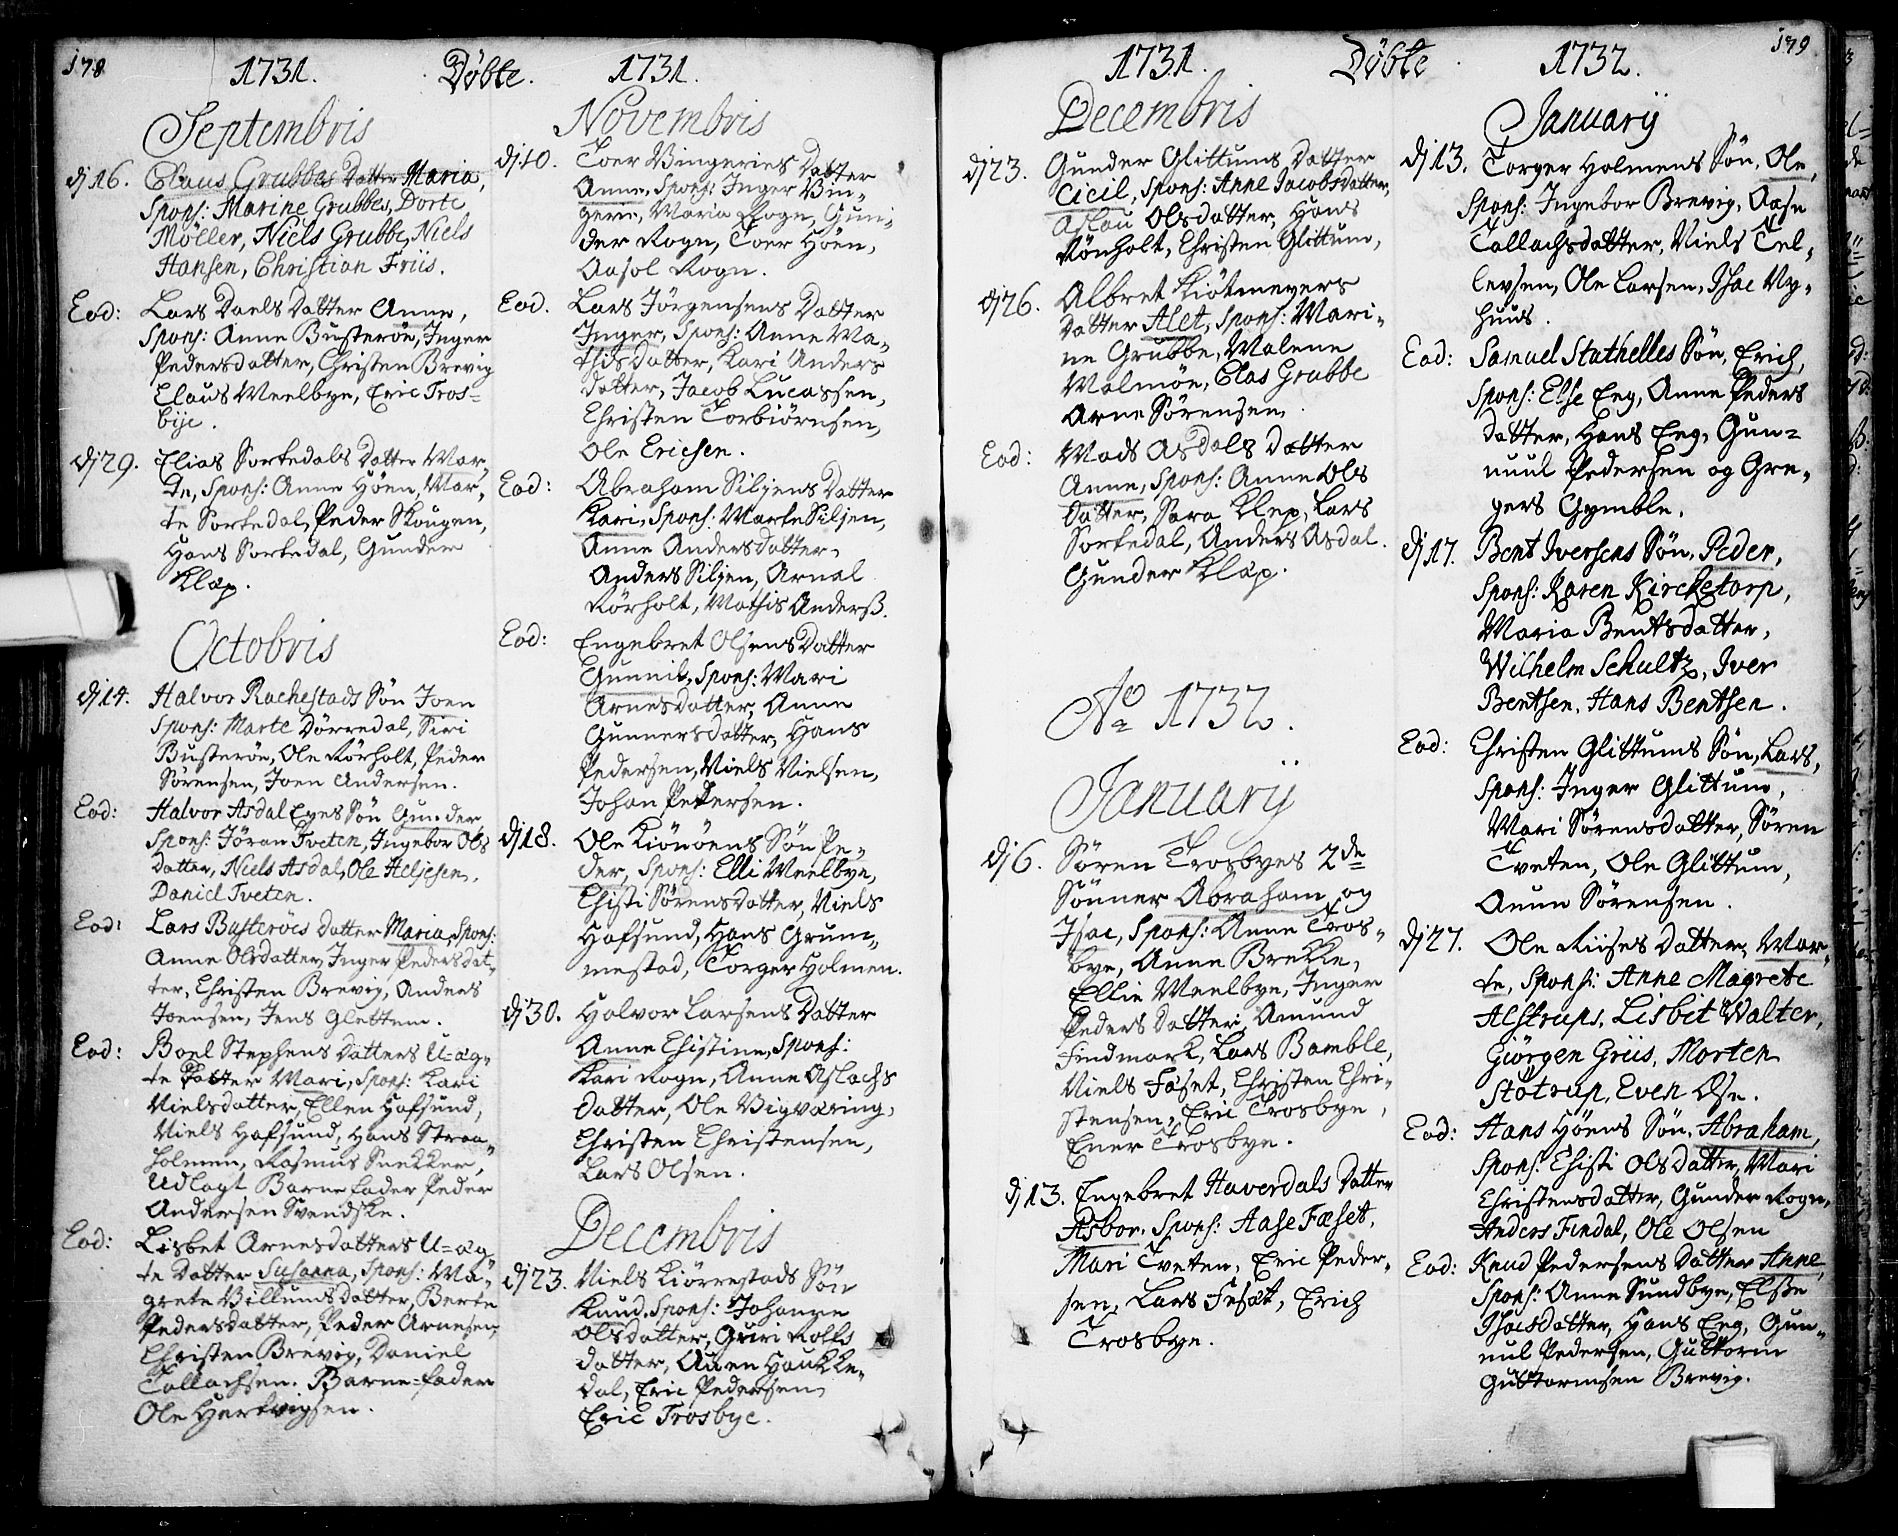 178
1731. Døbte. 1731.
Septembris
dj 16. Claus Grubbes Datter Maria,
Spons: Marine Grubbes, Dorte
Möller, Niels Grubbe, Niels
Hansen, Christian Friis.
Eod: Lars Daels Datter Anne,
Spons: Anne Busterøe, Inger
Pedersdatter, Christen Brevig
Claus Meelbye, Eric Tros=
bije.
dj 29. Elias Sortedals Datter Mar-
te, Spons: Anne Höen, Mar-
te Sortedal, Peder Skougen,
Hans Sortedal, Gunder
Klap.
Octobris
dj 14. Halvor Rachestads Søn Joen
Spons: Marte Dørredal, Siri
Busterøe, Ole Rörholt, Peder
Sörensen, Joen Andersen.
Eod: Halvor Asdal Eyes Søn Gunder
Spons: Jöran Tveten, Ingebor Ols
datter, Niels Asdal, Ole Heljesen,
Daniel Tveten.
Eod: Lars Busterøes datter Maria, Spons:
Anne Olsdatter, Inger Pedersdat-
ter, Christen Brevig, Anders
Joensen, Jens Glettem.
Eod: Boel Stephens Datters U=æg-
te Datter Mari, Spons: Kari
Nielsdatter, Ellen Hafsund,
Niels Hafsund, Hans Straa-
holmen, Rasmus Snekker,
Udlagt Barnefader Peder
Andersen Svendske.
Eod: Lisbet Arnesdatters U=æg
te Datter Susanna, Spons: Ma-
grete Villumsdatter, Berte
Pedersdatter, Peder Arnesen,
Christen Brevig, Daniel
Tallachsen. Barne=fader
Ole Hartvigsen.
Novembris
dj 10. Toer Vingeries Datter
Anne, Spons: Inger Vin-
gerie, Maria Rogn, Gun-
der Rogn, Toer Höen,
Aasol Rogn.
Eod. Lars Jörgensens Datter
Inger, Spons: Anne Ma-
thisdatter, Kari Anders
datter, Jacob Lucassen,
Christen Torbiörnsen,
Ole Ericsen.
Eod: Abraham Siljens Datter
Kari, Spons: Marte Siljen,
Anne Andersdatter,
Anders Siljen, Arnal
Rörholt, Mathis Anderß.
Eod: Engebret Olsens Datter
Gunnil, Spons: Mari
Arnesdatter, Anne
Gunnersdatter, Hans
Pedersen, Niels Nielsen,
Johan Pedersen.
dj 18. Ole Kiönöens Søn Pe-
der, Spons: Elli Meelbye,
Chisti Sørensdatter, Niels
Hafsund, Hans Grum-
mestad, Torger Holmen.
dj 30. Halvor Larsens Datter
Anne Chistine, Spons:
Kari Rogn, Anne Aslachs
datter, Ole Vigværing,
Christen Christensen,
Lars Olsen.
Decembris
dj 23. Niels Kiörrestads Søn
Knud, Spons: Johanne
Olsdatter, Guri Rolfs
datter, Auen Haukke-
dal, Eric Pedersen
Eric Trosbye.
1731. Døbte 1732.
179
Decembris
dj 23. Gunder Glittums Datter
Cicil, Spons: Anne Jacobsdatter,
Aslau Olsdatter, Hans
Rönholt, Christen Glittum,
dj 26. Albret Kiötmeyers
Datter Alet, Spons: Mari-
ne Grubbe, Malene
Malmöe, Clas Grubbe
Arne Sörensen.
Eod: Mads Asdals datter
Anne, Spons: Anne Ols
datter, Sara Klep, Lars
Sortedal, Anders Asdal.
Gunder Klap.
Ao 1732.
Januarij
dj 6. Sören Trosbyes 2de
Sönner Abraham og
Isac, Spons: Anne Tros-
bye, Anne Brekke,
Ellie Meelbye, Inger
Peders datter, Amund
Findmark, Lars Bamble,
Niels Faset, Christen Chri-
stensen, Eric Trosbye,
Ener Trosbye.
dj 13. Engebret Haverdals Datter
Asbor. Spons: Aase Fæset,
Mari Tveten, Eric Peder-
sen, Lars Fesæt, Erich
Trosbye.
Januarij
dj 13. Torger Holmens Søn, Ole,
Spons: Ingebor Brevig, Aase
Tallachsdatter, Niels Tel-
levsen, Ole Larsen, Isac Ny-
huus.
Eod: Samuel Stathelles Søn, Erich,
Spons: Else Eeg, Anne Peders
datter, Hans Eeg, Gun=
nuul Pedersen og Gre-
gers Gymble.
dj 17. Bent Iversens Søn, Peder,
Spons: Karen Kircketorp,
Maria Bentsdatter,
Wilhelm Schultz, Iver
Bentsen, Hans Bentsen.
Eod: Christen Glittums Søn, Lars,
Spons: Inger Glittum,
Mari Sörensdatter, Sören
Tveten, Ole Glittum,
Aunn Sørensen.
dj 27. Ole Riises Datter, Mar-
te, Spons: Anne Magrete
Alstrups, Lisbet Walter,
Giörgen Griis, Morten
Stötrup, Even Øse.
Eod: Hans Höens Søn, Abraham,
Spons: Chisti Olsdatter, Mari
Christensdatter, Gunder Rogn,
Anders Findal, Ole Olsen
Eod: Knud Pedersens Datter Anne,
Spons: Anne Sundbye, Elsse
Isacsdatter, Hans Eeg, Gun-
nul Pedersen, Guttorm
Guttormsen Brevig.